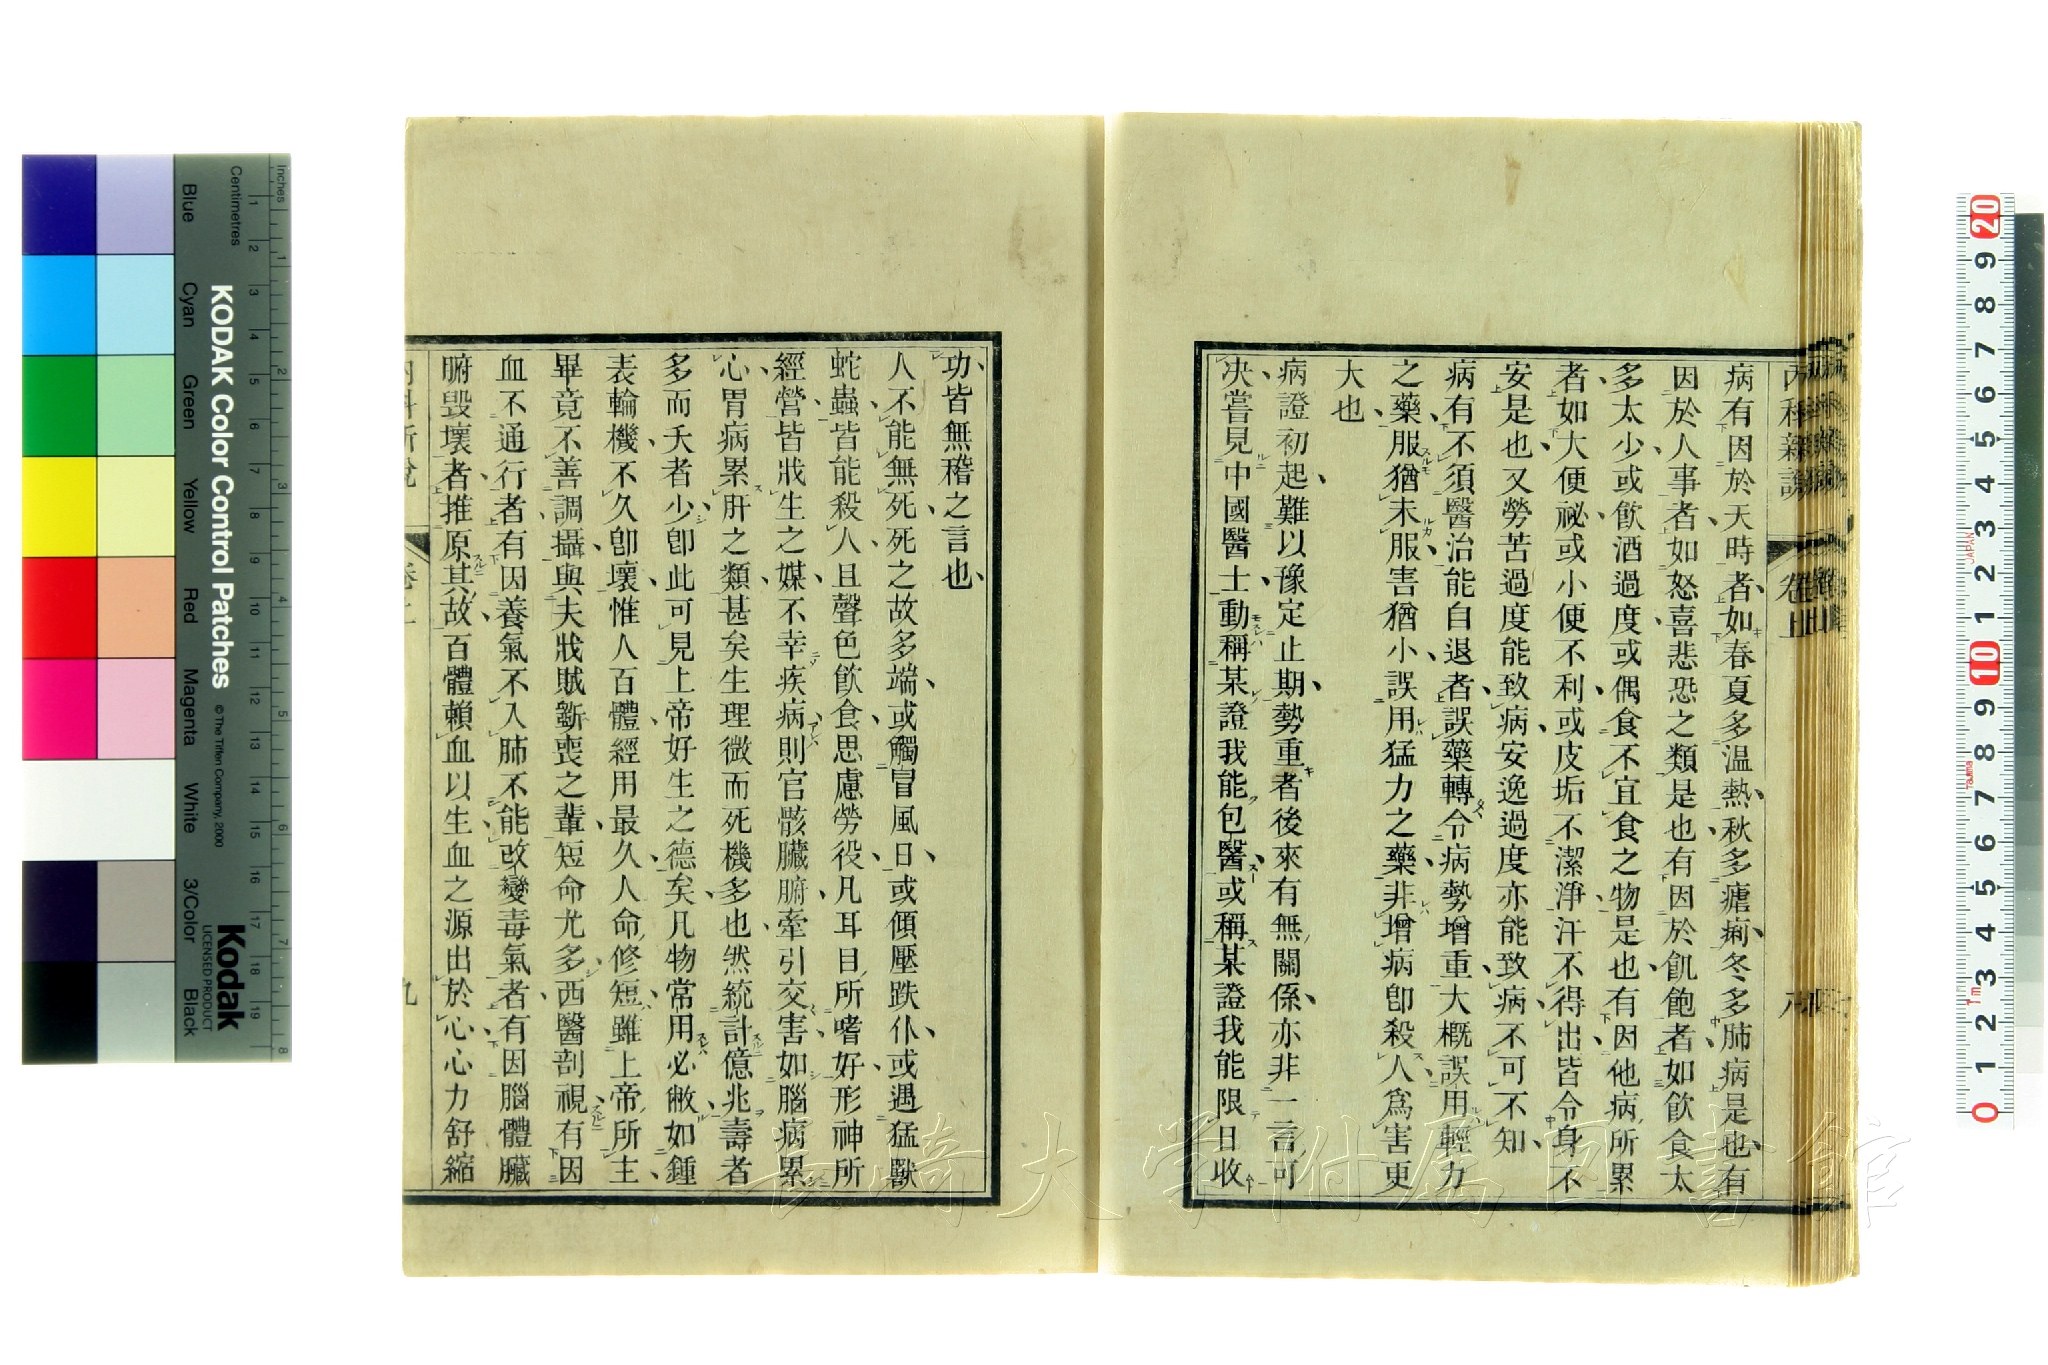 內科新說
卷上
八
病有因於天時者如春夏多温熱秋多瘧痢冬多肺病是也有
因於人事者如怒喜悲恐之類是也有因於飢飽者如飲食太
多太少或飲酒過度或偶食不宜食之物是也有因他病所累
者如大便祕或小便不利或皮垢不潔淨汗不得出皆令身不
安是也又勞苦過度能致病安逸過度亦能致病不可不知
病有不須醫治能自退者誤藥轉令病勢增重大概誤用輕力
之藥服猶未服害猶小誤用猛力之藥非增病卽殺人爲害更
大也
病證初起難以豫定止期勢重者後來有無關係亦非一言可
决嘗見中國醫士動稱某證我能包醫或稱某證我能限日收
功皆無稽之言也
人不能無死死之故多端或觸冒風日或傾壓跌仆或遇猛獸
蛇蟲皆能殺人且聲色飲食思慮勞役凡耳目所嗜好形神所
經營皆戕生之媒不幸疾病則官骸臟腑牽引交害如腦病累
心胃病累肝之類甚矣生理微而死機多也然統計億兆壽者
多而夭者少卽此可見上帝好生之德矣凡物常用必敝如鍾
表輪機不久卽壞惟人百體經用最久人命修短雖上帝所主
畢竟不善調攝與夫戕賊斵喪之輩短命尤多西醫剖視有因
血不通行者有因養氣不入肺不能改變毒氣者有因腦體臟
腑毀壞者推原其故百體賴血以生血之源出於心心力舒縮
內科新說
卷上
九
KODAK Color Control Patches
© The Tiffen Company, 2000
Kodak
LICENSED PRODUCT
Inches
Centimetres
Blue
Cyan
Green
Yellow
Red
Magenta
White
3/Color
Black
1 2 3 4 5 6 7 8 9 10 11 12 13 14 15 16 17 18 19
1 2 3 4 5 6 7 8
20 9 8 7 6 5 4 3 2 1 10 9 8 7 6 5 4 3 2 1 0
JAPAN
Tajima
1m
長崎大学附属図書館